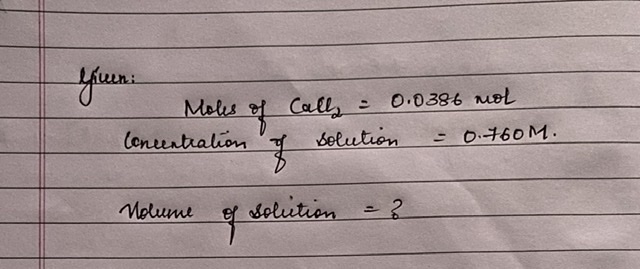 Given:
Moles of CaCl₂ = 0.0386 mol
Concentration of solution = 0.760M.
Volume of solution = ?